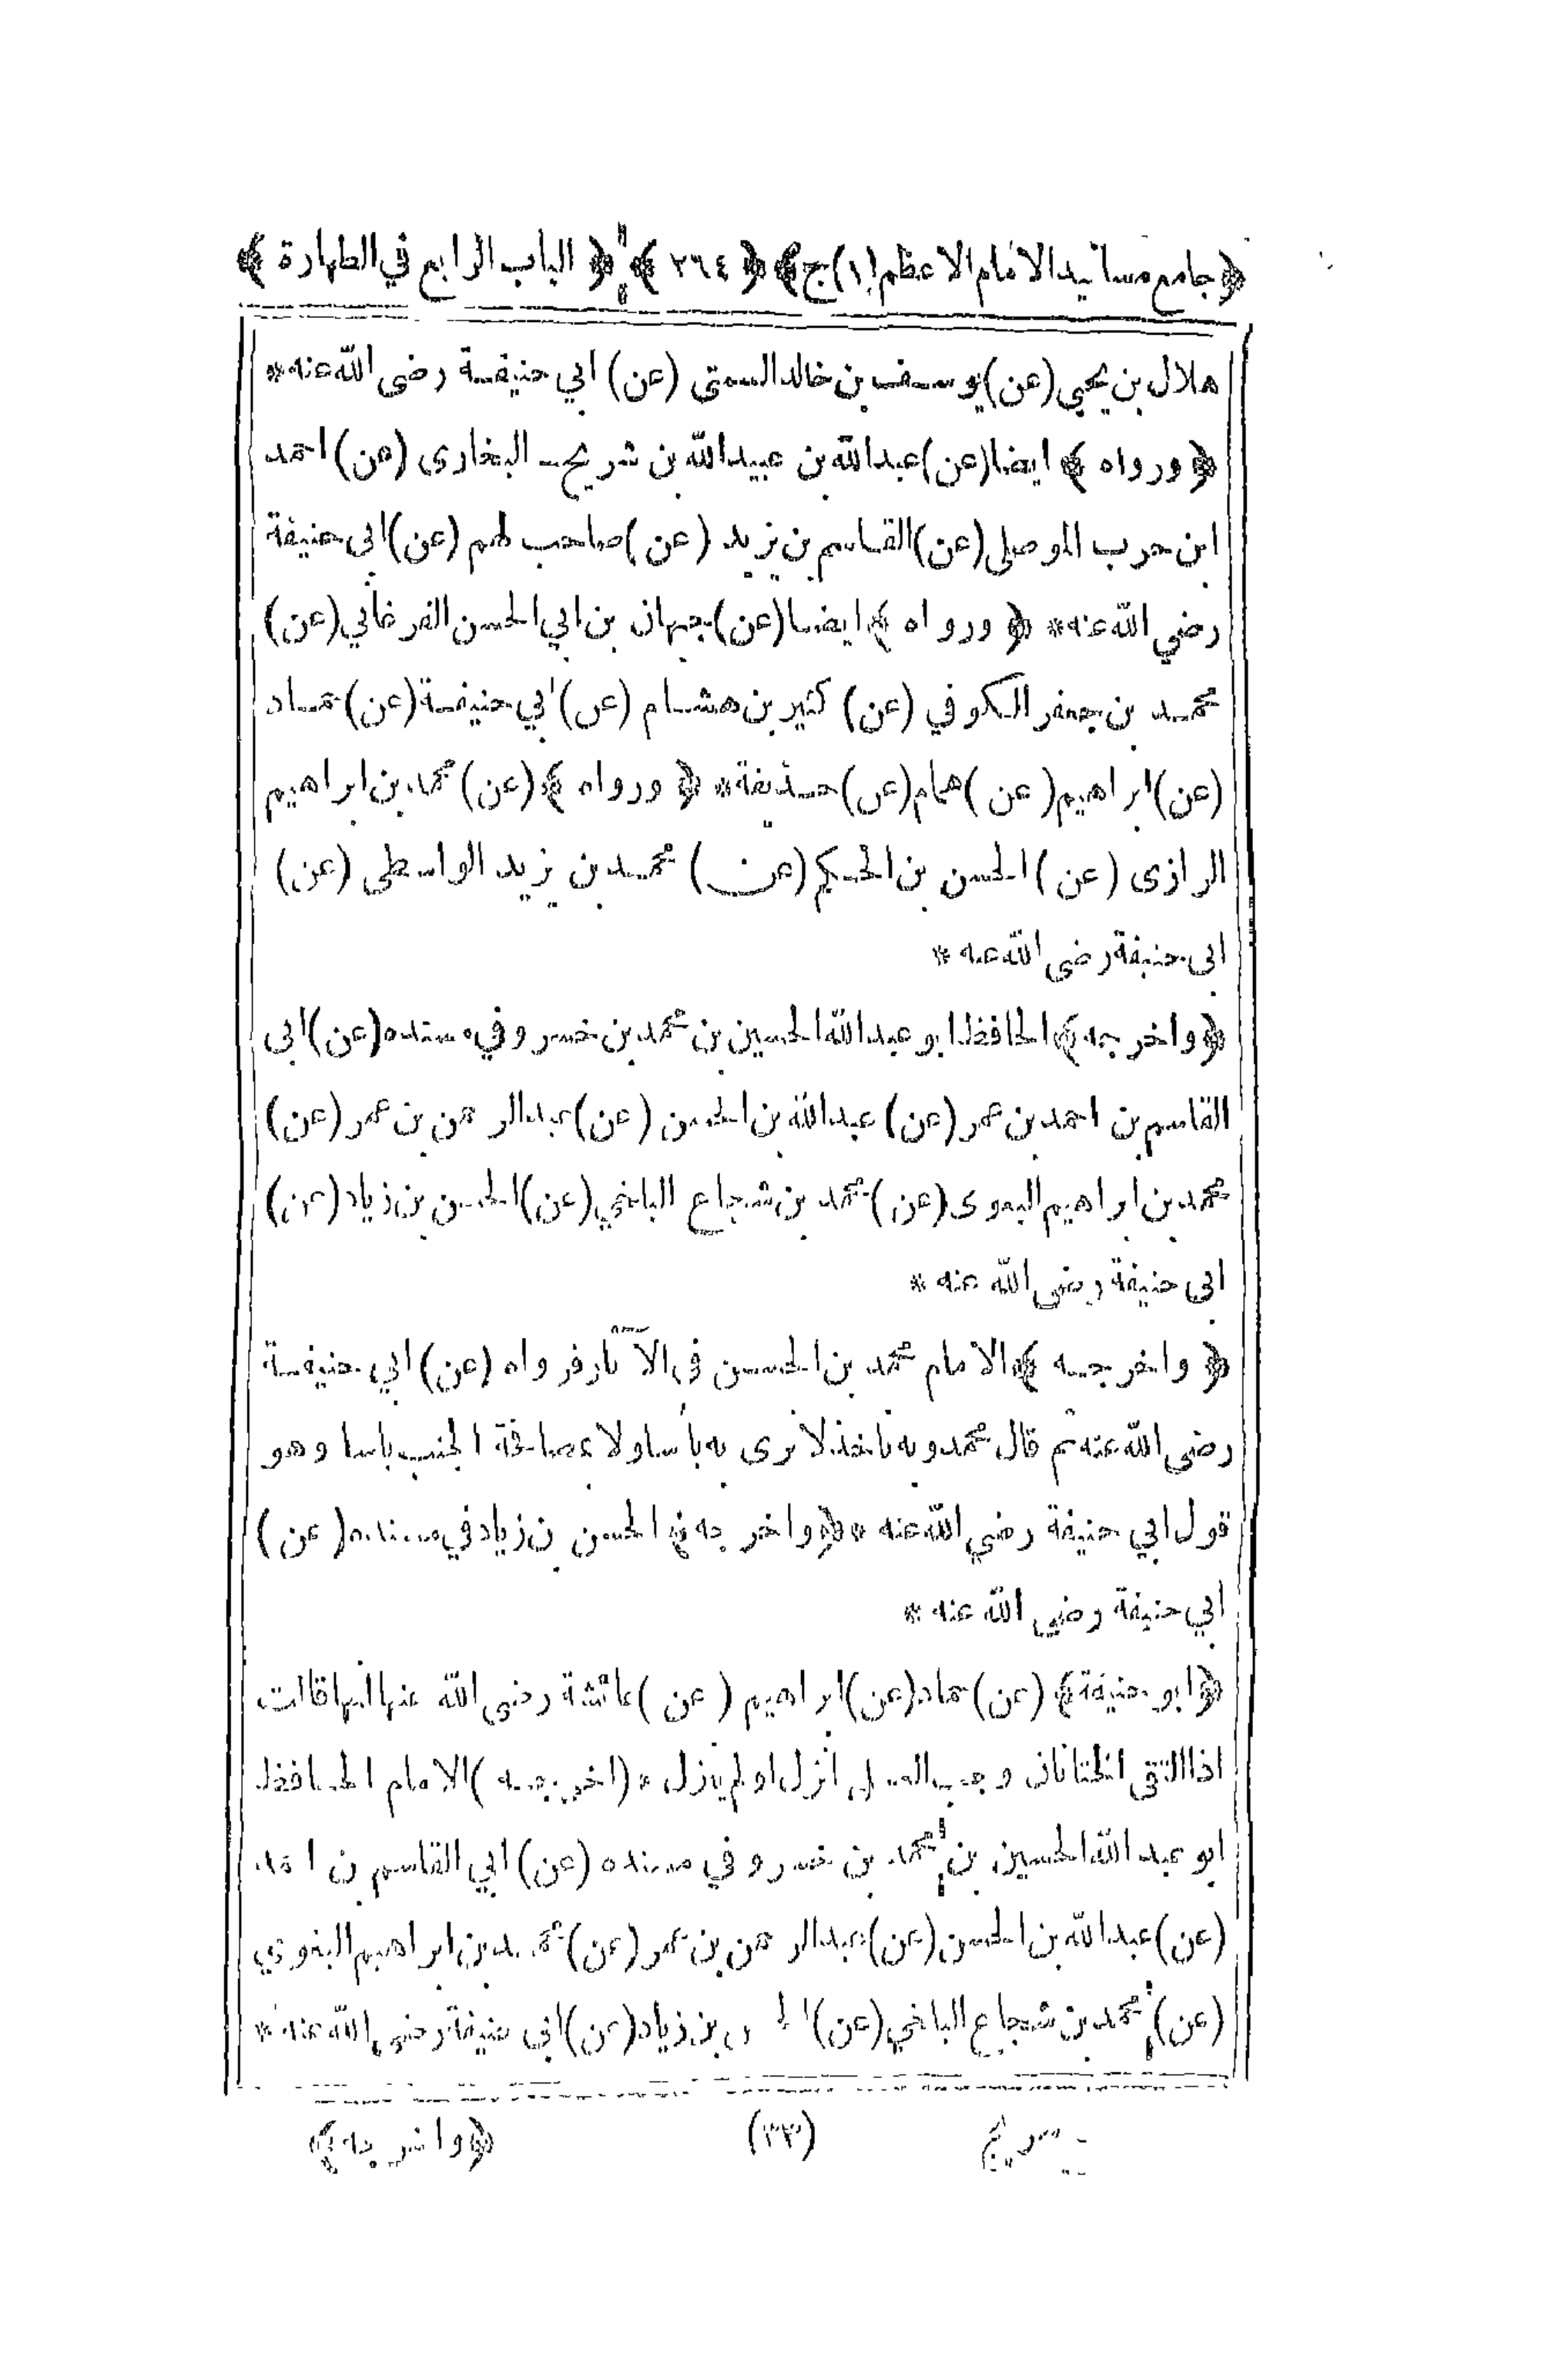 ﴿جامع مسانيد الامام الاعظم (١) ج﴾ ﴿٢٦٤﴾ ﴿الباب الرابع في الطهارة﴾
هلال بن يحيى (عن) يوسف بن خالد السمتى (عن) ابي حنيفة رضى الله عنه *
﴿ورواه﴾ ايضا (عن) عبدالله بن عبيدالله بن شريح البخارى (عن) احمد
ابن حرب الموصلى (عن) القاسم بن يزيد (عن) صاحب لهم (عن) ابى حنيفة
رضي الله عنه * ﴿ورواه﴾ ايضا (عن) جيهان بن ابي الحسن الفرغاني (عن)
محمد بن جعفر الكوفي (عن) كثير بن هشام (عن) ابي حنيفة (عن) حماد
(عن) ابراهيم (عن) همام (عن) حذيفة * ﴿ورواه﴾ (عن) محمد بن ابراهيم
الرازى (عن) الحسن بن الحكم (عن) محمد بن يزيد الواسطى (عن)
ابى حنيفة رضى الله عنه *
﴿واخرجه﴾ الحافظ ابو عبدالله الحسين بن محمد بن خسرو في مسنده (عن) ابى
القاسم بن احمد بن عمر (عن) عبدالله بن الحسن (عن) عبدالرحمن بن عمر (عن)
محمد بن ابراهيم البغوى (عن) محمد بن شجاع البلخي (عن) الحسن بن زياد (عن)
ابى حنيفة رضى الله عنه *
﴿واخرجه﴾ الامام محمد بن الحسن فى الآثار فرواه (عن) ابي حنيفة
رضى الله عنه ثم قال محمد وبه ناخذ لا نرى به بأسا ولا بمصافحة الجنب باسا وهو
قول ابي حنيفة رضي الله عنه * ﴿واخرجه﴾ الحسن بن زياد في مسنده (عن)
ابي حنيفة رضي الله عنه *
﴿ابو حنيفة﴾ (عن) حماد (عن) ابراهيم (عن) عائشة رضى الله عنها انها قالت
اذا التقى الختانان وجب الغسل انزل او لم ينزل * (اخرجه) الامام الحافظ
ابو عبد الله الحسين بن محمد بن خسرو في مسنده (عن) ابي القاسم بن احمد
(عن) عبدالله بن الحسن (عن) عبدالرحمن بن عمر (عن) محمد بن ابراهيم البغوي
(عن) محمد بن شجاع البلخي (عن) الحسن بن زياد (عن) ابى حنيفة رضى الله عنه *
(٣٣) ﴿واخرجه﴾